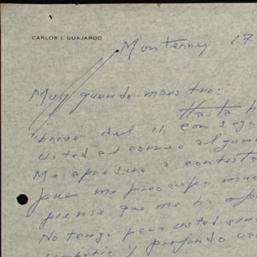 CARLOS I. GUAJARDO
Monterrey 17
Muy querido maestro:
Hasta h
del 11, con
usted el correo algun
Me apresuro a contesta
pues me preocupa mu
piense que me ha
No tengo para usted
simpatía y profundo